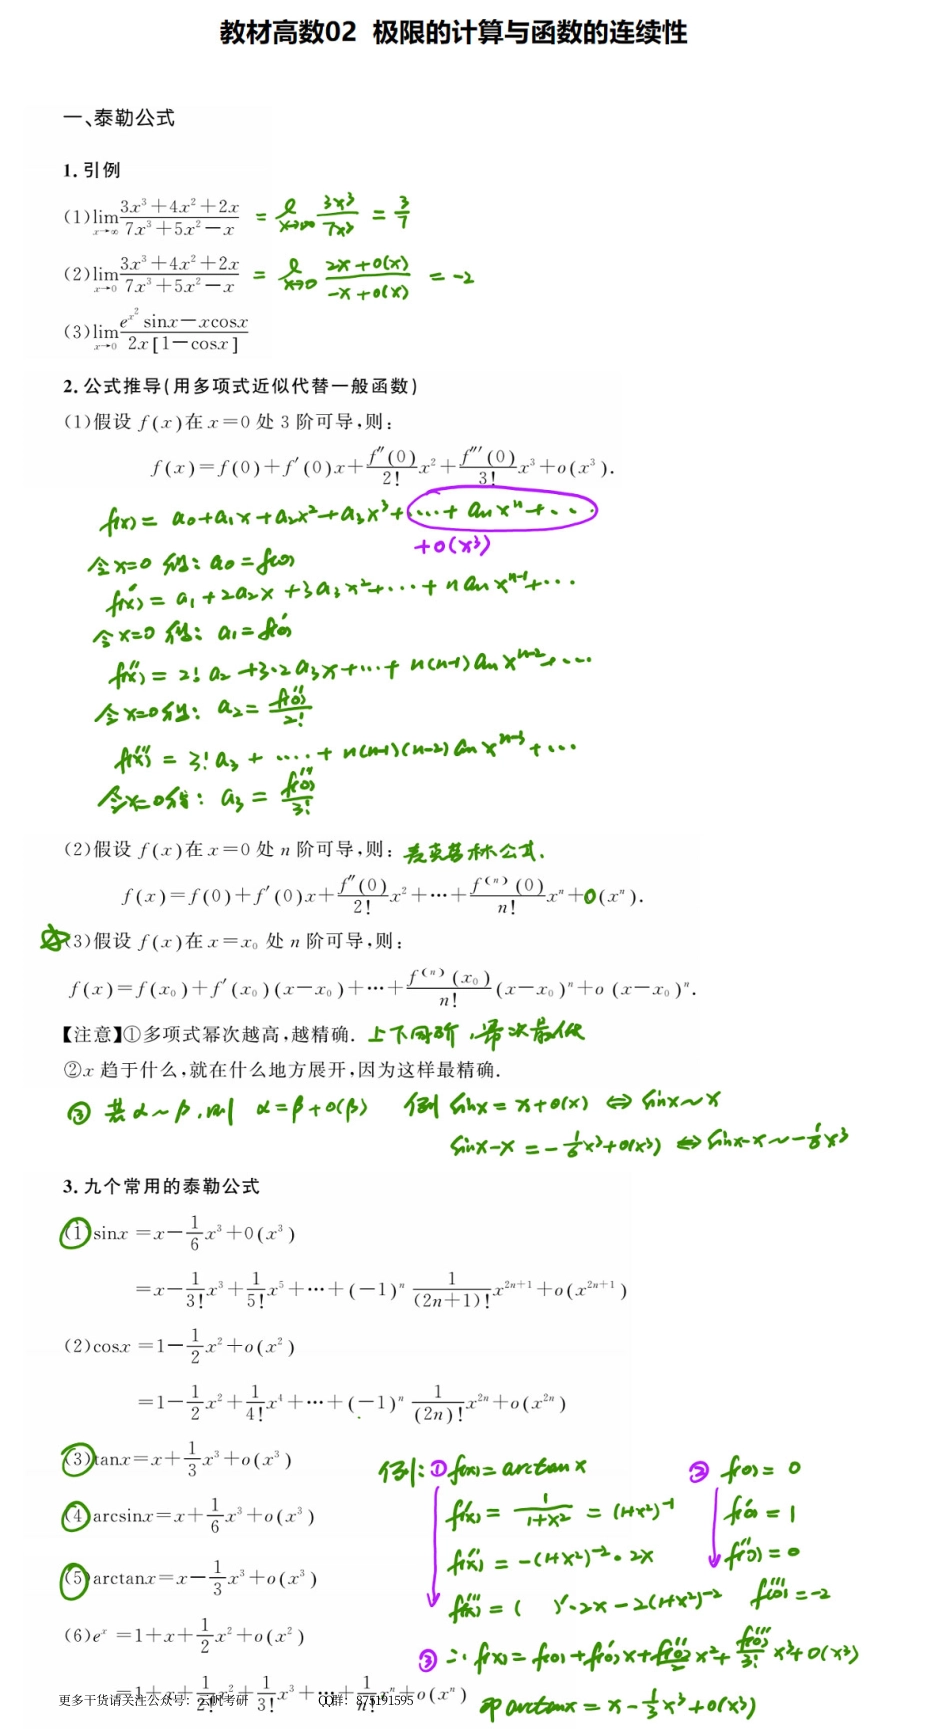 教材高数02 极限的计算与函数的连续性
一、泰勒公式
1. 引例
(1) lim_{x→∞} (3x³+4x²+2x)/(7x³+5x²−x) = l_{x→∞} 3x³/7x³ = 3/7
(2) lim_{x→0} (3x³+4x²+2x)/(7x³+5x²−x) = l_{x→0} (2x+o(x))/(−x+o(x)) = −2
(3) lim_{x→0} (e^{x²}sinx−xcosx)/(2x[1−cosx])
2. 公式推导(用多项式近似代替一般函数)
(1)假设 f(x)在 x=0 处 3 阶可导,则:
f(x)=f(0)+f′(0)x+f″(0)/2! x²+f‴(0)/3! x³+o(x³).
f(x)= a₀+a₁x+a₂x²+a₃x³+⋯+aₙxⁿ+⋯
+o(x³)
令x=0 得: a₀=f(0)
f′(x)= a₁+2a₂x+3a₃x²+⋯+naₙxⁿ⁻¹+⋯
令x=0 得: a₁=f′(0)
f″(x)= 2!a₂+3·2a₃x+⋯+n(n-1)aₙxⁿ⁻²+⋯
令x=0得: a₂=f″(0)/2!
f‴(x)= 3!a₃+⋯+n(n-1)(n-2)aₙxⁿ⁻³+⋯
令x=0得: a₃=f‴(0)/3!
(2)假设 f(x)在 x=0 处 n 阶可导,则: 麦克劳林公式.
f(x)=f(0)+f′(0)x+f″(0)/2! x²+⋯+f⁽ⁿ⁾(0)/n! xⁿ+o(xⁿ).
☆(3)假设 f(x)在 x=x₀ 处 n 阶可导,则:
f(x)=f(x₀)+f′(x₀)(x−x₀)+⋯+f⁽ⁿ⁾(x₀)/n! (x−x₀)ⁿ+o (x−x₀)ⁿ.
【注意】①多项式幂次越高,越精确. 上下同阶,幂次最低
②x 趋于什么,就在什么地方展开,因为这样最精确.
③ 若α~β,则 α=β+o(β) 例 sinx=x+o(x) ⇔ sinx~x
sinx−x=−1/6 x³+o(x³) ⇔ sinx−x~−1/6 x³
3. 九个常用的泰勒公式
(1)sinx =x−1/6 x³+0(x³)
=x−1/3! x³+1/5! x⁵+⋯+(−1)ⁿ 1/(2n+1)! x²ⁿ⁺¹+o(x²ⁿ⁺¹)
(2)cosx =1−1/2 x²+o(x²)
=1−1/2 x²+1/4! x⁴+⋯+(−1)ⁿ 1/(2n)! x²ⁿ+o(x²ⁿ)
(3)tanx=x+1/3 x³+o(x³)
(4)arcsinx=x+1/6 x³+o(x³)
(5)arctanx=x−1/3 x³+o(x³)
(6)eˣ =1+x+1/2 x²+o(x²)
=1+x+1/2! x²+1/3! x³+⋯+1/n! xⁿ+o(xⁿ)
例: ①f(x)=arctanx
f′(x)= 1/(1+x²) = (1+x²)⁻¹
f″(x)= −(1+x²)⁻²·2x
f‴(x)= ( )′·2x−2(1+x²)⁻²
② f(0)= 0
f′(0)= 1
f″(0)= 0
f‴(0)=−2
③ ∴ f(x)=f(0)+f′(0)x+f″(0)/2 x²+f‴(0)/3! x³+o(x³)
即 arctanx= x−1/3 x³+o(x³)
更多干货请关注公众号：云帆考研 QQ群：875191595